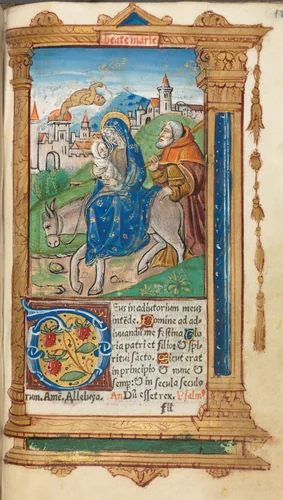 beate marie
Eus in adiutorium meuz
intēde. Domine ad ad-
iuuandū me festina Glo
ria patri et filio: & spi-
ritui sācto. Sicut erat
in principio & nūc &
semp: & in secula seculo
rum. Amē. Alleluya. An̄ Dū esset rex. Psalm̄